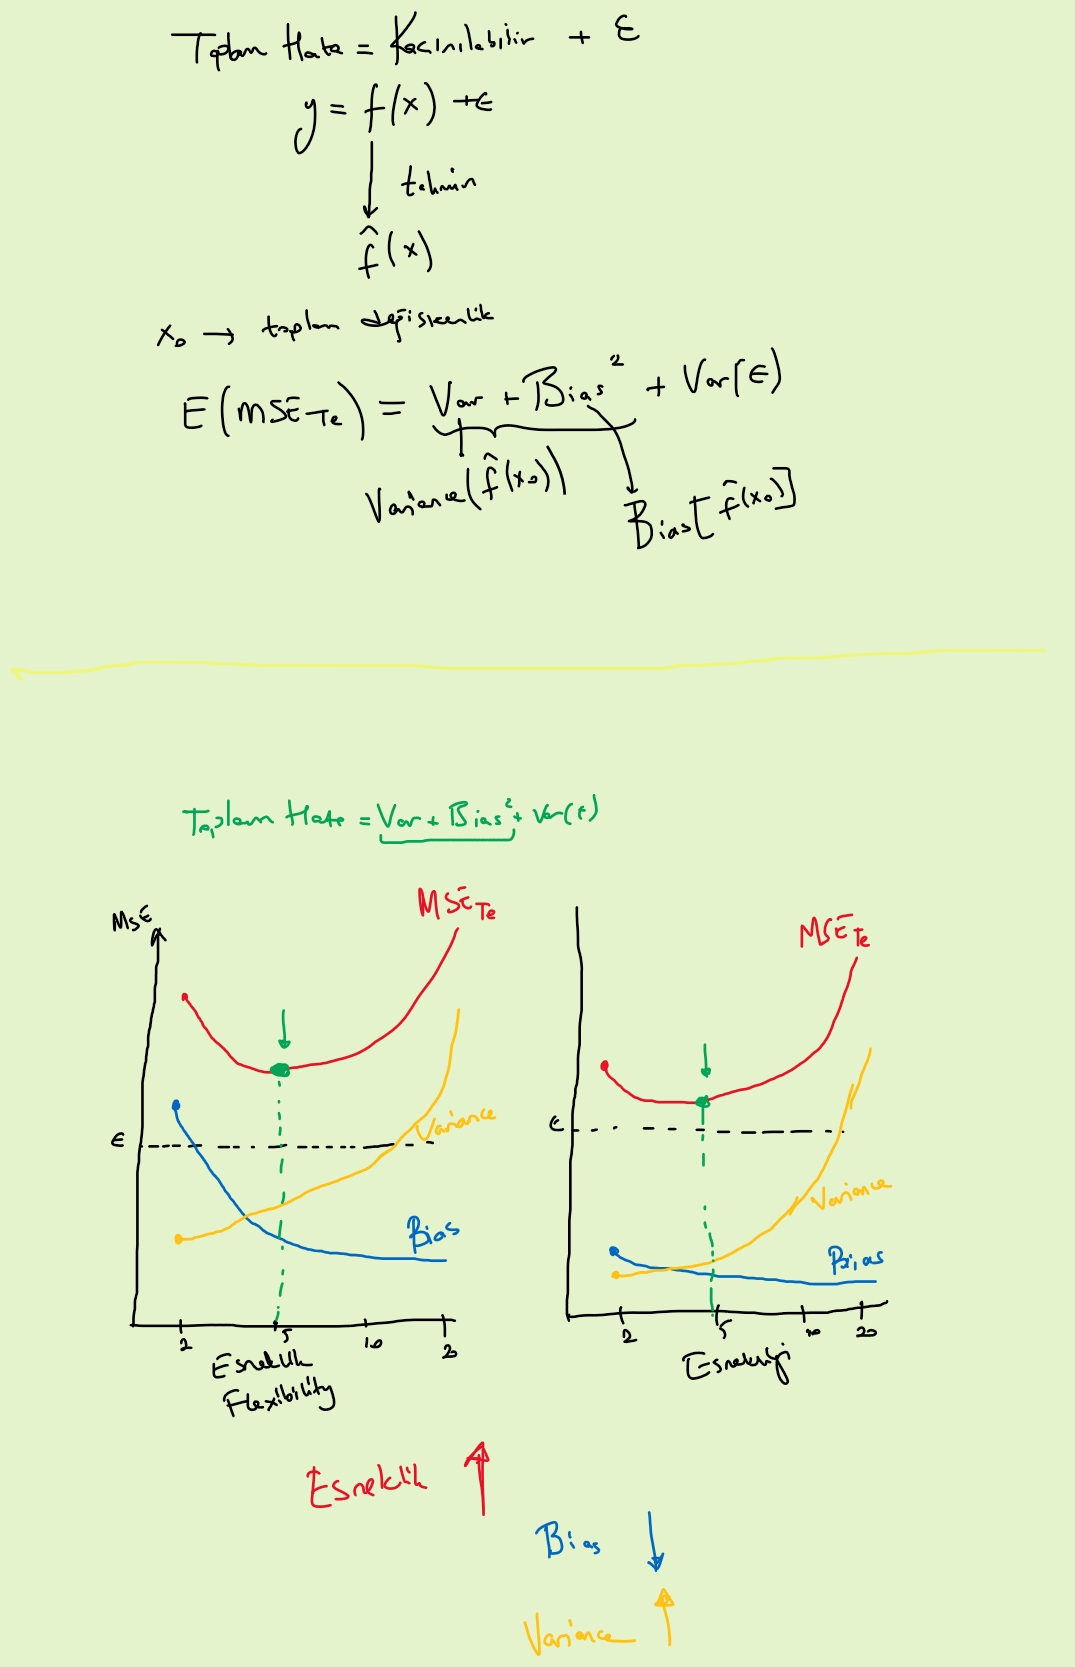 Toplam Hata = Kaçınılabilir + ε
y = f(x) + ε
tahmin
f̂(x)
x₀ → toplam değişkenlik
E(MSE_Te) = Var + Bias² + Var(ε)
Variance(f̂(x₀))
Bias[f̂(x₀)]
Toplam Hata = Var + Bias² + Var(ε)
MSE
MSE_Te
ε
Variance
Bias
2 5 10 20
Esneklik
Flexibility
MSE_Te
ε
Variance
Bias
2 5 10 20
Esnekliği
Esneklik ↑
Bias ↓
Variance ↑